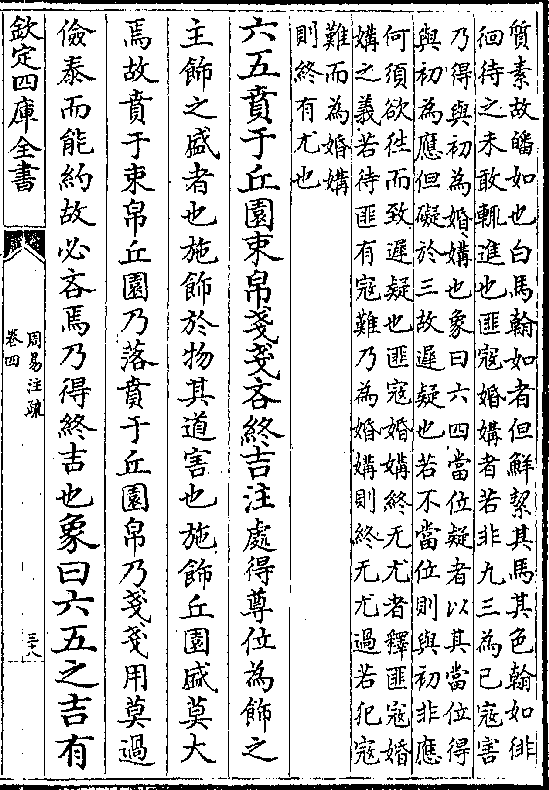 質素故皤如也白馬翰如者但鮮絜其馬其色翰如徘
徊待之未敢輒進也匪寇婚媾者若非九三為己寇害
乃得與初為婚媾也象曰六四當位疑者以其當位得
與初為應但礙於三故遲疑也若不當位則與初非應
何須欲往而致遲疑也匪寇婚媾終无尤者釋匪寇婚
媾之義若待匪有寇難乃為婚媾則終无尤過若犯寇
難而為婚媾
則終有尤也
六五賁于丘園束帛戔戔吝終吉注處得尊位為飾之
主飾之盛者也施飾於物其道害也施飾丘園盛莫大
焉故賁于束帛丘園乃落賁于丘園帛乃戔戔用莫過
儉泰而能約故必吝焉乃得終吉也象曰六五之吉有
欽定四庫全書
周易注疏
卷四
三十八